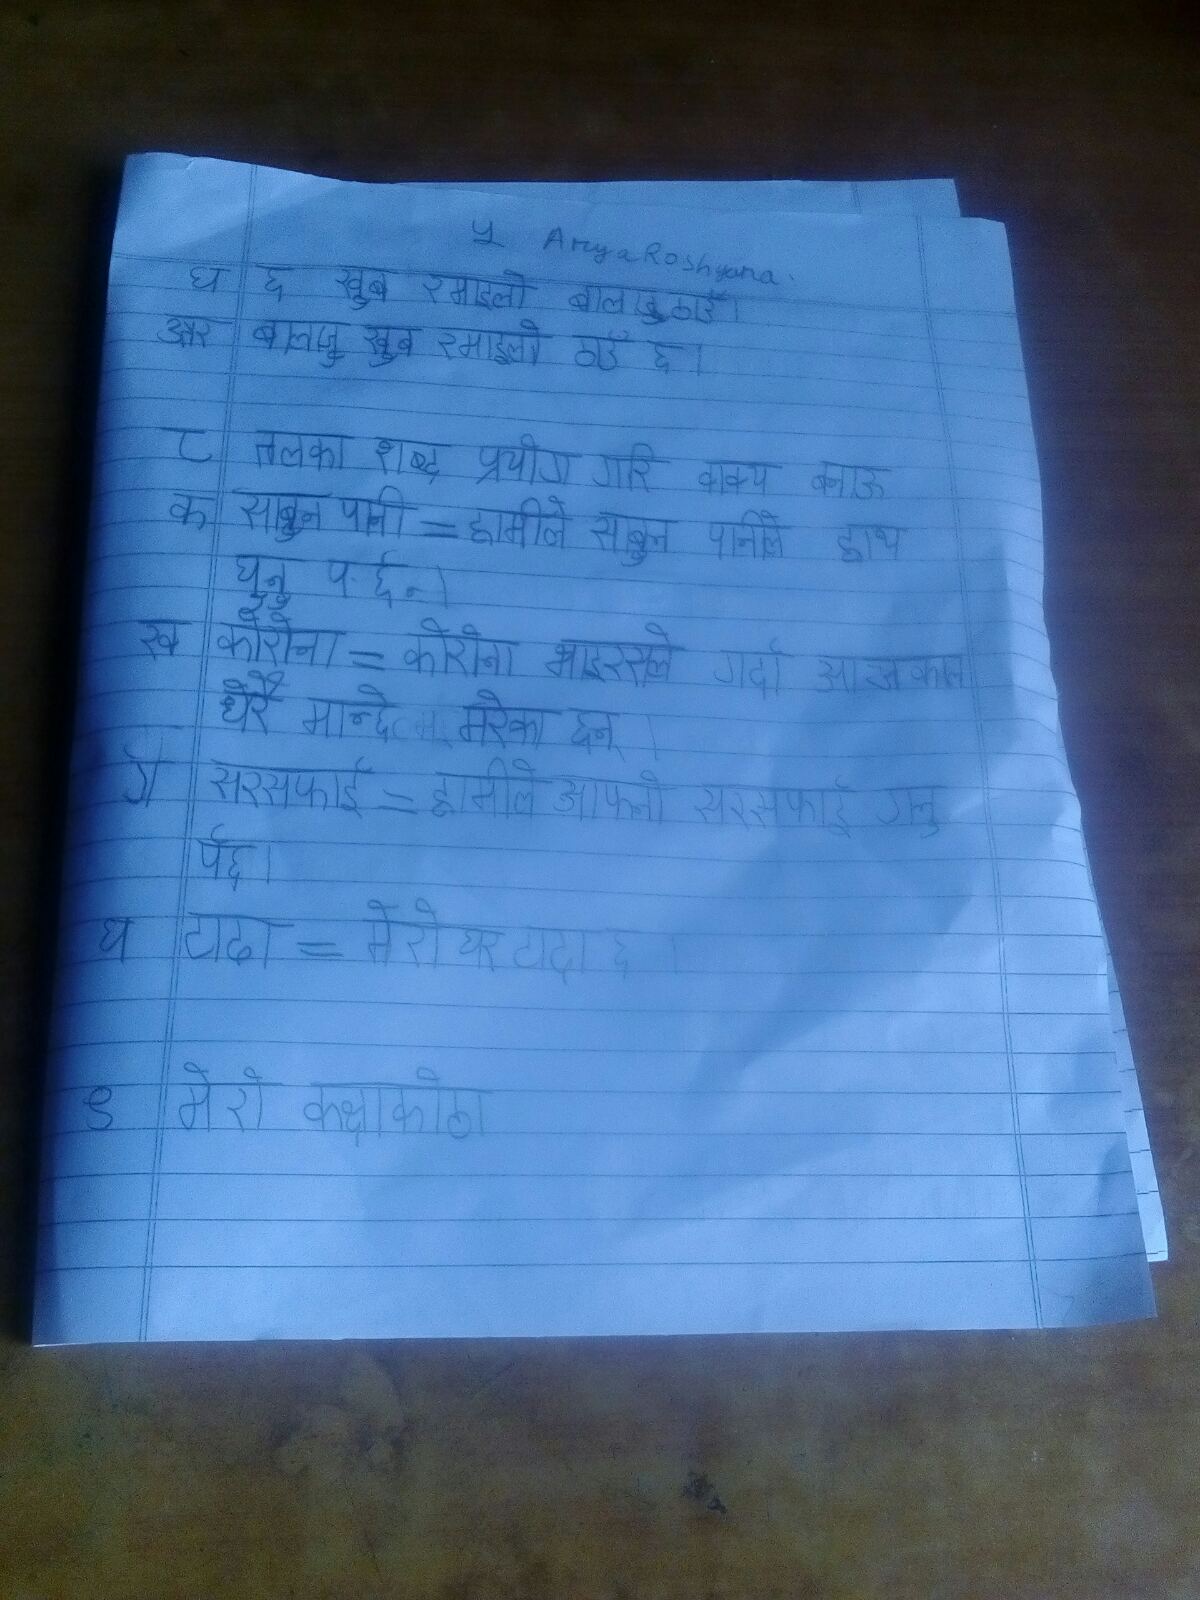 ५ Arya Roshyana.
घ छ खुब रमाइलो बालाजु ठाउँ।
उत्तर बालाजु खुब रमाइलो ठाउँ छ।
८ तलका शब्द प्रयोग गरि वाक्य बनाऊ
क साबुन पानी = हामीले साबुन पानीले हाथ
धुनु पर्छन।
ख कोरोना = कोरोना भाइरसले गर्दा आजकाल
धेरै मान्छे मरेका छन्।
ग सरसफाई = हामीले आफ्नो सरसफाई गर्नु
पर्छ।
घ टाढा = मेरो घर टाढा छ।
९ मेरो कक्षाकोठा